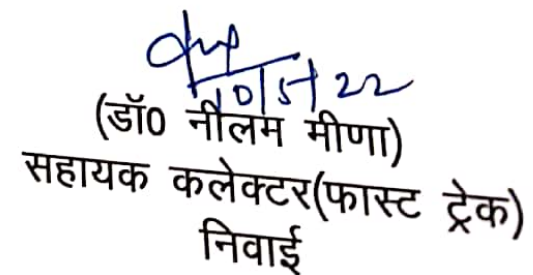 10/5/22
(डॉ0 नीलम मीणा)
सहायक कलेक्टर(फास्ट ट्रेक)
निवाई